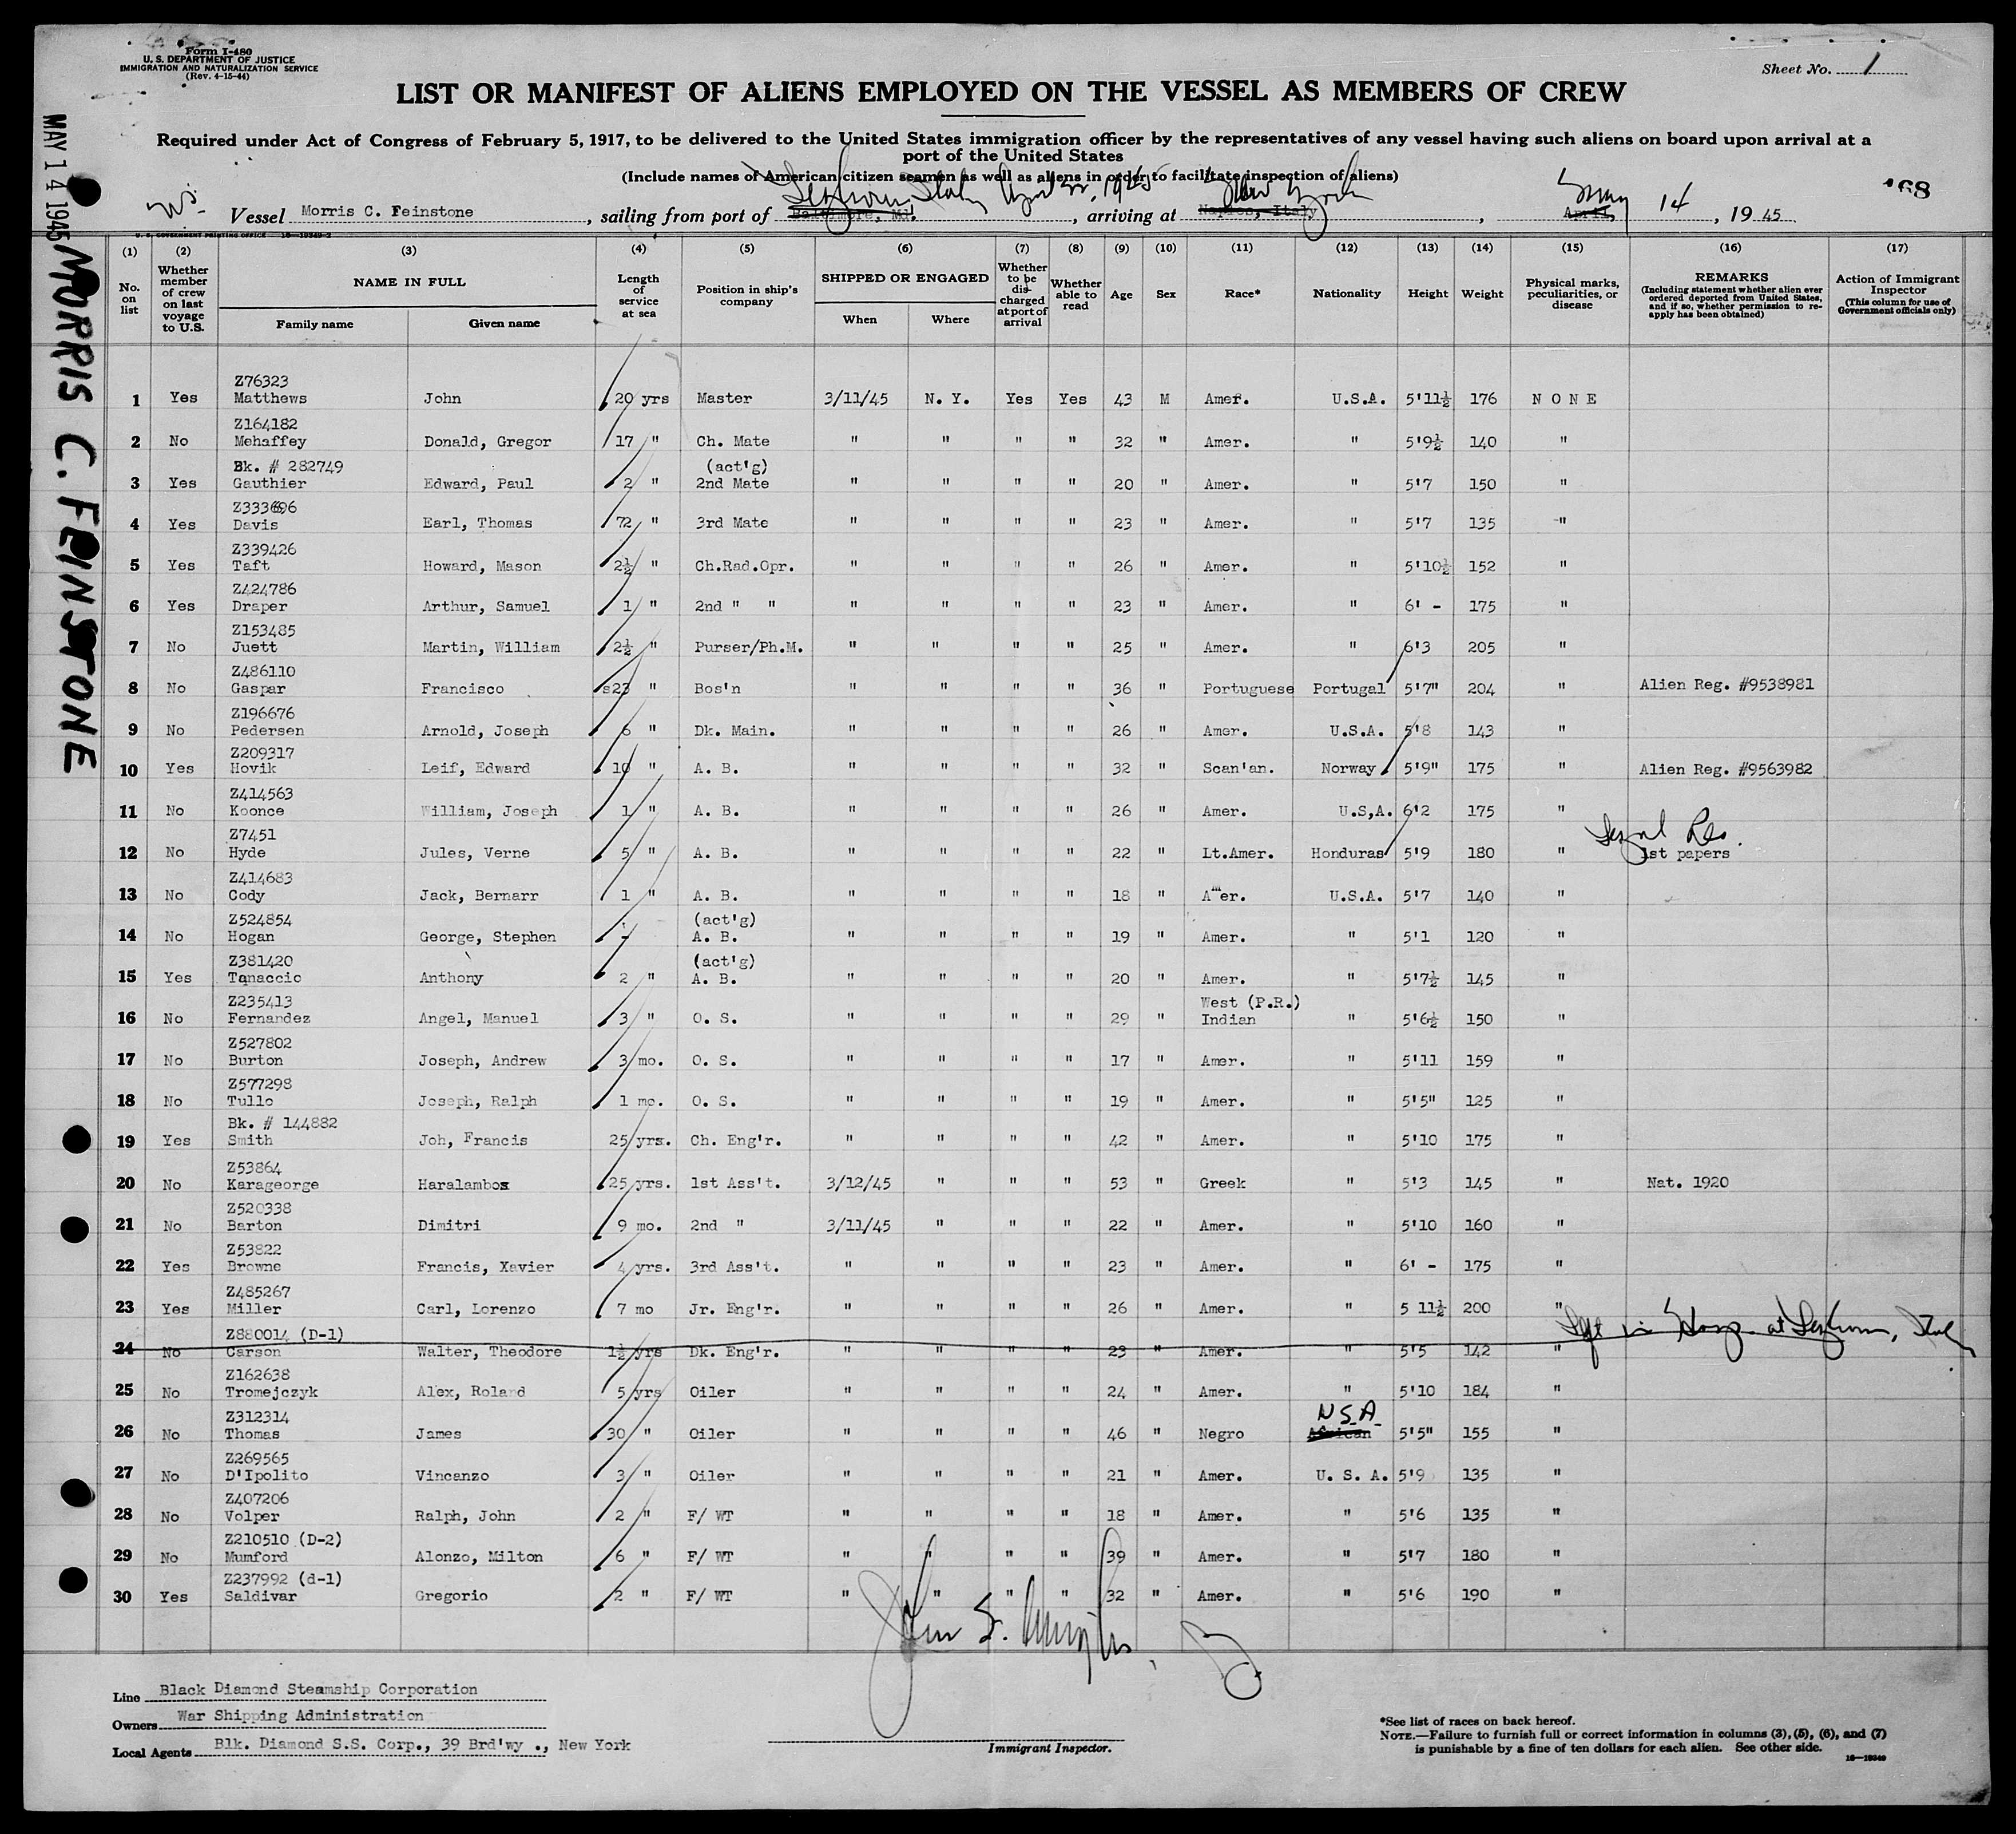 Form I-480
U. S. DEPARTMENT OF JUSTICE
IMMIGRATION AND NATURALIZATION SERVICE
(Rev. 4-15-44)
Sheet No. 1
LIST OR MANIFEST OF ALIENS EMPLOYED ON THE VESSEL AS MEMBERS OF CREW
Required under Act of Congress of February 5, 1917, to be delivered to the United States immigration officer by the representatives of any vessel having such aliens on board upon arrival at a
port of the United States
(Include names of American citizen seamen as well as aliens in order to facilitate inspection of aliens)
Leghorn Italy April 22, 1945 New York May 14 68
Vessel Morris C. Feinstone, sailing from port of Baltimore, Md., arriving at Naples, Italy, April, 19 45
MAY 14 1945
MORRIS C. FEINSTONE
U. S. GOVERNMENT PRINTING OFFICE 16—19349-2
(1) (2) (3) (4) (5) (6) (7) (8) (9) (10) (11) (12) (13) (14) (15) (16) (17)
No. on list
Whether member of crew on last voyage to U.S.
NAME IN FULL
Family name Given name
Length of service at sea
Position in ship's company
SHIPPED OR ENGAGED
When Where
Whether to be discharged at port of arrival
Whether able to read
Age
Sex
Race*
Nationality
Height
Weight
Physical marks, peculiarities, or disease
REMARKS
(Including statement whether alien ever ordered deported from United States, and if so, whether permission to re-apply has been obtained)
Action of Immigrant Inspector
(This column for use of Government officials only)
Z76323
1 Yes Matthews John 20 yrs Master 3/11/45 N. Y. Yes Yes 43 M Amer. U.S.A. 5'11½ 176 NONE
Z164182
2 No Mehaffey Donald, Gregor 17 " Ch. Mate " " " " 32 " Amer. " 5'9½ 140 "
Bk. # 282749 (act'g)
3 Yes Gauthier Edward, Paul 2 " 2nd Mate " " " " 20 " Amer. " 5'7 150 "
Z333696
4 Yes Davis Earl, Thomas 72 " 3rd Mate " " " " 23 " Amer. " 5'7 135 "
Z339426
5 Yes Taft Howard, Mason 2½ " Ch.Rad.Opr. " " " " 26 " Amer. " 5'10½ 152 "
Z424786
6 Yes Draper Arthur, Samuel 1 " 2nd " " " " " " 23 " Amer. " 6' - 175 "
Z153485
7 No Juett Martin, William 2½ " Purser/Ph.M. " " " " 25 " Amer. " 6'3 205 "
Z486110
8 No Gaspar Francisco 23 " Bos'n " " " " 36 " Portuguese Portugal 5'7" 204 " Alien Reg. #9538981
Z196676
9 No Pedersen Arnold, Joseph 6 " Dk. Main. " " " " 26 " Amer. U.S.A. 5'8 143 "
Z209317
10 Yes Hovik Leif, Edward 10 " A. B. " " " " 32 " Scan'an. Norway 5'9" 175 " Alien Reg. #9563982
Z414563
11 No Koonce William, Joseph 1 " A. B. " " " " 26 " Amer. U.S,A. 6'2 175 "
Z7451 Legal Res.
12 No Hyde Jules, Verne 5 " A. B. " " " " 22 " Lt.Amer. Honduras 5'9 180 " 1st papers
Z414683
13 No Cody Jack, Bernarr 1 " A. B. " " " " 18 " Amer. U.S.A. 5'7 140 "
Z524854 (act'g)
14 No Hogan George, Stephen - A. B. " " " " 19 " Amer. " 5'1 120 "
Z381420 (act'g)
15 Yes Tanaccio Anthony 2 " A. B. " " " " 20 " Amer. " 5'7½ 145 "
Z235413 West (P.R.)
16 No Fernandez Angel, Manuel 3 " O. S. " " " " 29 " Indian " 5'6½ 150 "
Z527802
17 No Burton Joseph, Andrew 3 mo. O. S. " " " " 17 " Amer. " 5'11 159 "
Z577298
18 No Tullo Joseph, Ralph 1 mo. O. S. " " " " 19 " Amer. " 5'5" 125 "
Bk. # 144882
19 Yes Smith Joh, Francis 25 yrs. Ch. Eng'r. " " " " 42 " Amer. " 5'10 175 "
Z53864
20 No Karageorge Haralambos 25 yrs. 1st Ass't. 3/12/45 " " " 53 " Greek " 5'3 145 " Nat. 1920
Z520338
21 No Barton Dimitri 9 mo. 2nd " 3/11/45 " " " 22 " Amer. " 5'10 160 "
Z53822
22 Yes Browne Francis, Xavier 4 yrs. 3rd Ass't. " " " " 23 " Amer. " 6' - 175 "
Z485267
23 Yes Miller Carl, Lorenzo 7 mo Jr. Eng'r. " " " " 26 " Amer. " 5 11½ 200 "
Z880014 (D-1) Left in Hosp at Leghorn, Italy
24 No Carson Walter, Theodore 1½ yrs Dk. Eng'r. " " " " 23 " Amer. " 5'5 142 "
Z162638
25 No Tromejczyk Alex, Roland 5 yrs Oiler " " " " 24 " Amer. " 5'10 184 "
Z312314 U.S.A.
26 No Thomas James 30 " Oiler " " " " 46 " Negro African 5'5" 155 "
Z269565
27 No D'Ipolito Vincanzo 3 " Oiler " " " " 21 " Amer. U. S. A. 5'9 135 "
Z407206
28 No Volper Ralph, John 2 " F/ WT " " " " 18 " Amer. " 5'6 135 "
Z210510 (D-2)
29 No Mumford Alonzo, Milton 6 " F/ WT " " " " 39 " Amer. " 5'7 180 "
Z237992 (d-1)
30 Yes Saldivar Gregorio 2 " F/ WT " " " " 32 " Amer. " 5'6 190 "
Line Black Diamond Steamship Corporation
Owners War Shipping Administration
Local Agents Blk. Diamond S.S. Corp., 39 Brd'wy ., New York
Immigrant Inspector.
*See list of races on back hereof.
NOTE.—Failure to furnish full or correct information in columns (3), (5), (6), and (7)
is punishable by a fine of ten dollars for each alien. See other side.
16—19349